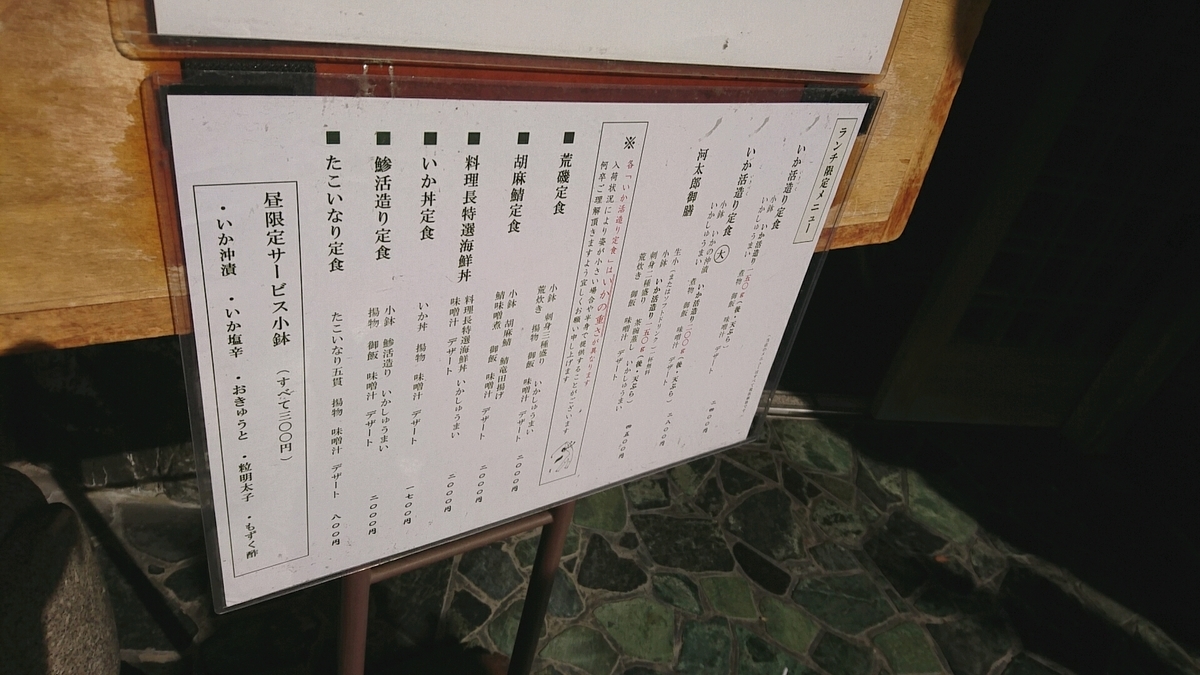 ランチ限定メニュー
いか活造り定食
小鉢 いか活造り一五〇g(後・天ぷら)
いかしゅうまい 煮物 御飯 味噌汁 デザート
二四〇〇円
いか活造り定食 大
小鉢 いかの沖漬 いか活造り二〇〇g(後・天ぷら)
いかしゅうまい 煮物 御飯 味噌汁 デザート
二八〇〇円
河太郎御膳
生小(またはソフトドリンク)一杯無料
小鉢 いか活造り一五〇g(後・天ぷら)
刺身二種盛り 茶碗蒸し いかしゅうまい
荒炊き 御飯 味噌汁 デザート
四五〇〇円
※ 各「いか活造り定食」は、いかの重さが異なります
入荷状況により姿が小さい場合や半身で提供することがございます
何卒ご理解頂きますよう宜しくお願い申し上げます
■荒磯定食
小鉢 刺身三種盛り いかしゅうまい
荒炊き 揚物 御飯 味噌汁 デザート
二〇〇〇円
■胡麻鯖定食
小鉢 胡麻鯖 鯖竜田揚げ
鯖味噌煮 御飯 味噌汁 デザート
二〇〇〇円
■料理長特選海鮮丼
料理長特選海鮮丼 いかしゅうまい
味噌汁 デザート
二〇〇〇円
■いか丼定食
いか丼 揚物 味噌汁 デザート
一七〇〇円
■鯵活造り定食
小鉢 鯵活造り いかしゅうまい
揚物 御飯 味噌汁 デザート
二〇〇〇円
■たこいなり定食
たこいなり五貫 揚物 味噌汁 デザート
八〇〇円
昼限定サービス小鉢 (すべて三〇〇円)
・いか沖漬 ・いか塩辛 ・おきゅうと ・粒明太子 ・もずく酢